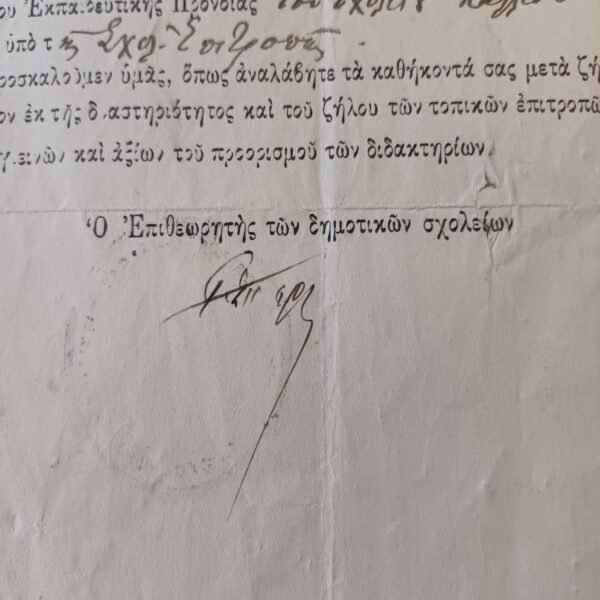 Ἐκπαιδευτικῆς Προνοίας τοῦ
ὑπὸ τῆς Σχολ. Ἐπιτροπῆς
ροσκαλοῦμεν ὑμᾶς, ὅπως ἀναλάβητε τὰ καθήκοντά σας μετὰ ζή
ον ἐκ τῆς δραστηριότητος καὶ τοῦ ζήλου τῶν τοπικῶν ἐπιτροπῶ
γιεινῶν καὶ ἀξίων τοῦ προορισμοῦ τῶν διδακτηρίων.
Ὁ Ἐπιθεωρητὴς τῶν δημοτικῶν σχολείων